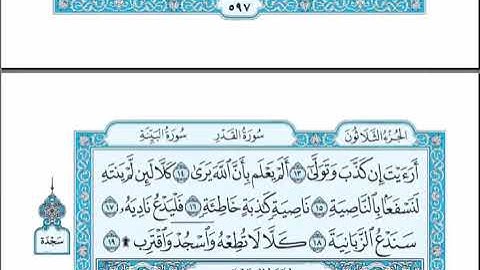 ٥٩٧
الجزء الثلاثون
سورة القدر
سورة البينة
أَرَءَيْتَ إِن كَذَّبَ وَتَوَلَّىٰٓ ١٣ أَلَمْ يَعْلَم بِأَنَّ ٱللَّهَ يَرَىٰ ١٤ كَلَّا لَئِن لَّمْ يَنتَهِ
لَنَسْفَعًۢا بِٱلنَّاصِيَةِ ١٥ نَاصِيَةٍ كَٰذِبَةٍ خَاطِئَةٍ ١٦ فَلْيَدْعُ نَادِيَهُۥ ١٧
سَنَدْعُ ٱلزَّبَانِيَةَ ١٨ كَلَّا لَا تُطِعْهُ وَٱسْجُدْ وَٱقْتَرِب ۩ ١٩
سجدة